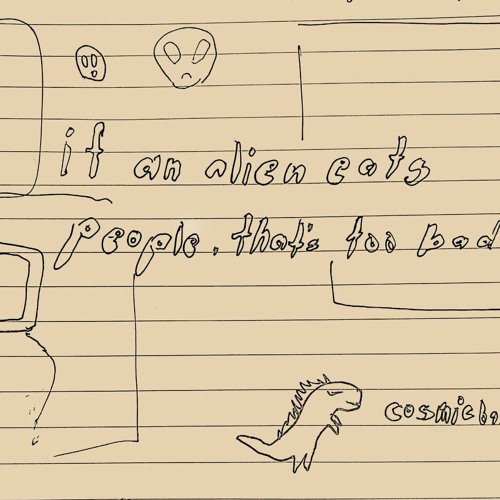 if an alien eats
people, that's too bad